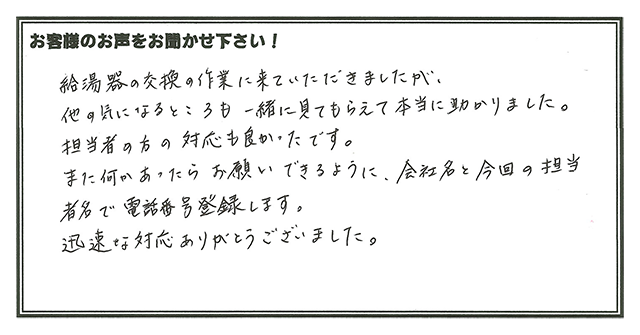 お客様のお声をお聞かせ下さい！
給湯器の交換の作業に来ていただきましたが、
他の気になるところも一緒に見てもらえて本当に助かりました。
担当者の方の対応も良かったです。
また何かあったらお願いできるように、会社名と今回の担当
者名で電話番号登録します。
迅速な対応ありがとうございました。